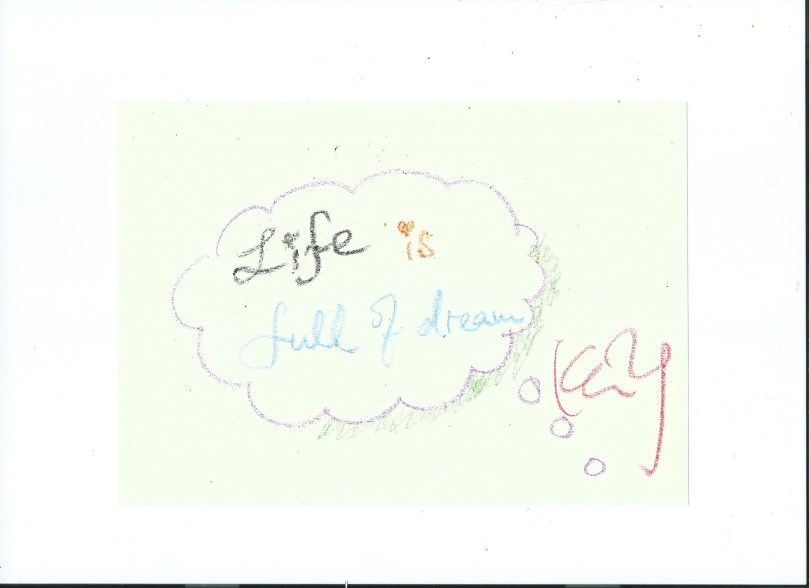 Life is
full of dream